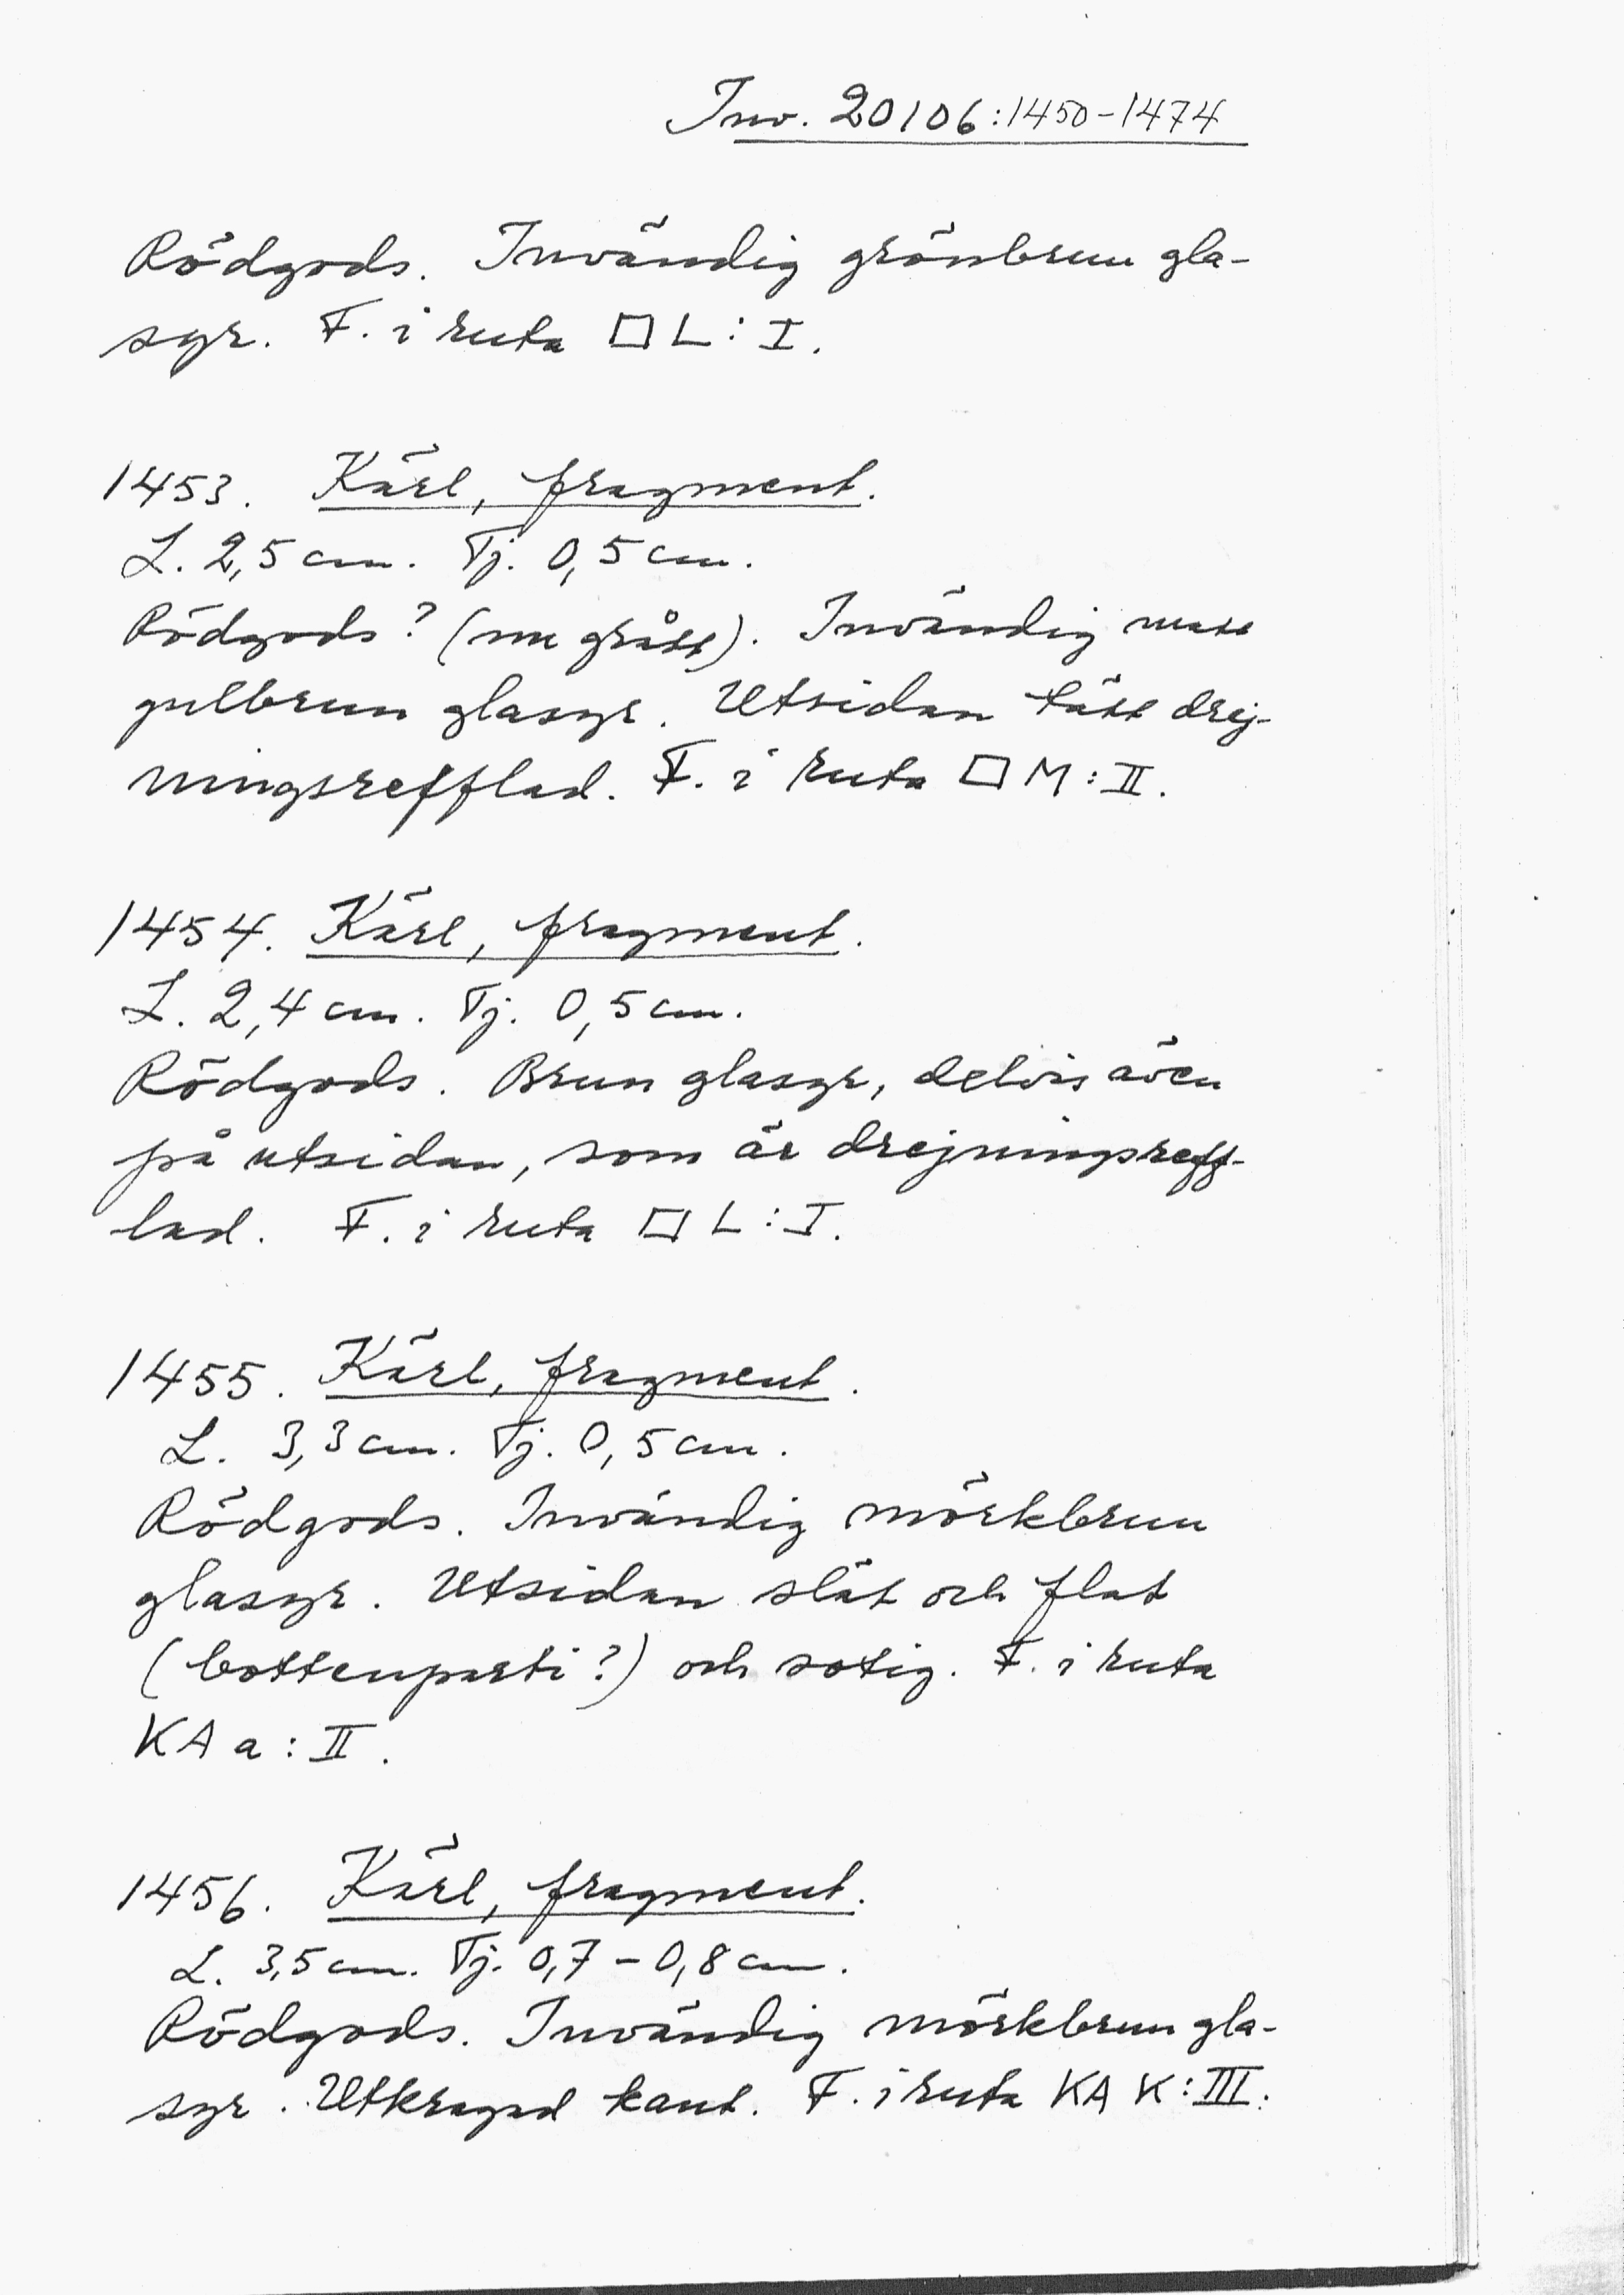 Inv. 20106:1450-1474
Rödgods. Invändig grönbrun gla-
syr. F. i ruta □ L: I.
1453. Kärl, fragment.
L. 2,5 cm. Tj. 0,5 cm.
Rödgods? (nu grått). Invändig matt
gulbrun glasyr. Utsidan tätt drej-
ningsrefflad. F. i ruta □ M: II.
1454. Kärl, fragment.
L. 2,4 cm. Tj. 0,5 cm.
Rödgods. Brun glasyr, delvis även
på utsidan, som är drejningsreff-
lad. F. i ruta □ L: I.
1455. Kärl, fragment.
L. 3,3 cm. Tj. 0,5 cm.
Rödgods. Invändig mörkbrun
glasyr. Utsidan slät och flat
(bottenparti?) och sotig. F. i ruta
KA a: II.
1456. Kärl, fragment.
L. 3,5 cm. Tj. 0,7-0,8 cm.
Rödgods. Invändig mörkbrun gla-
syr. Utkragad kant. F. i ruta KA K: III.